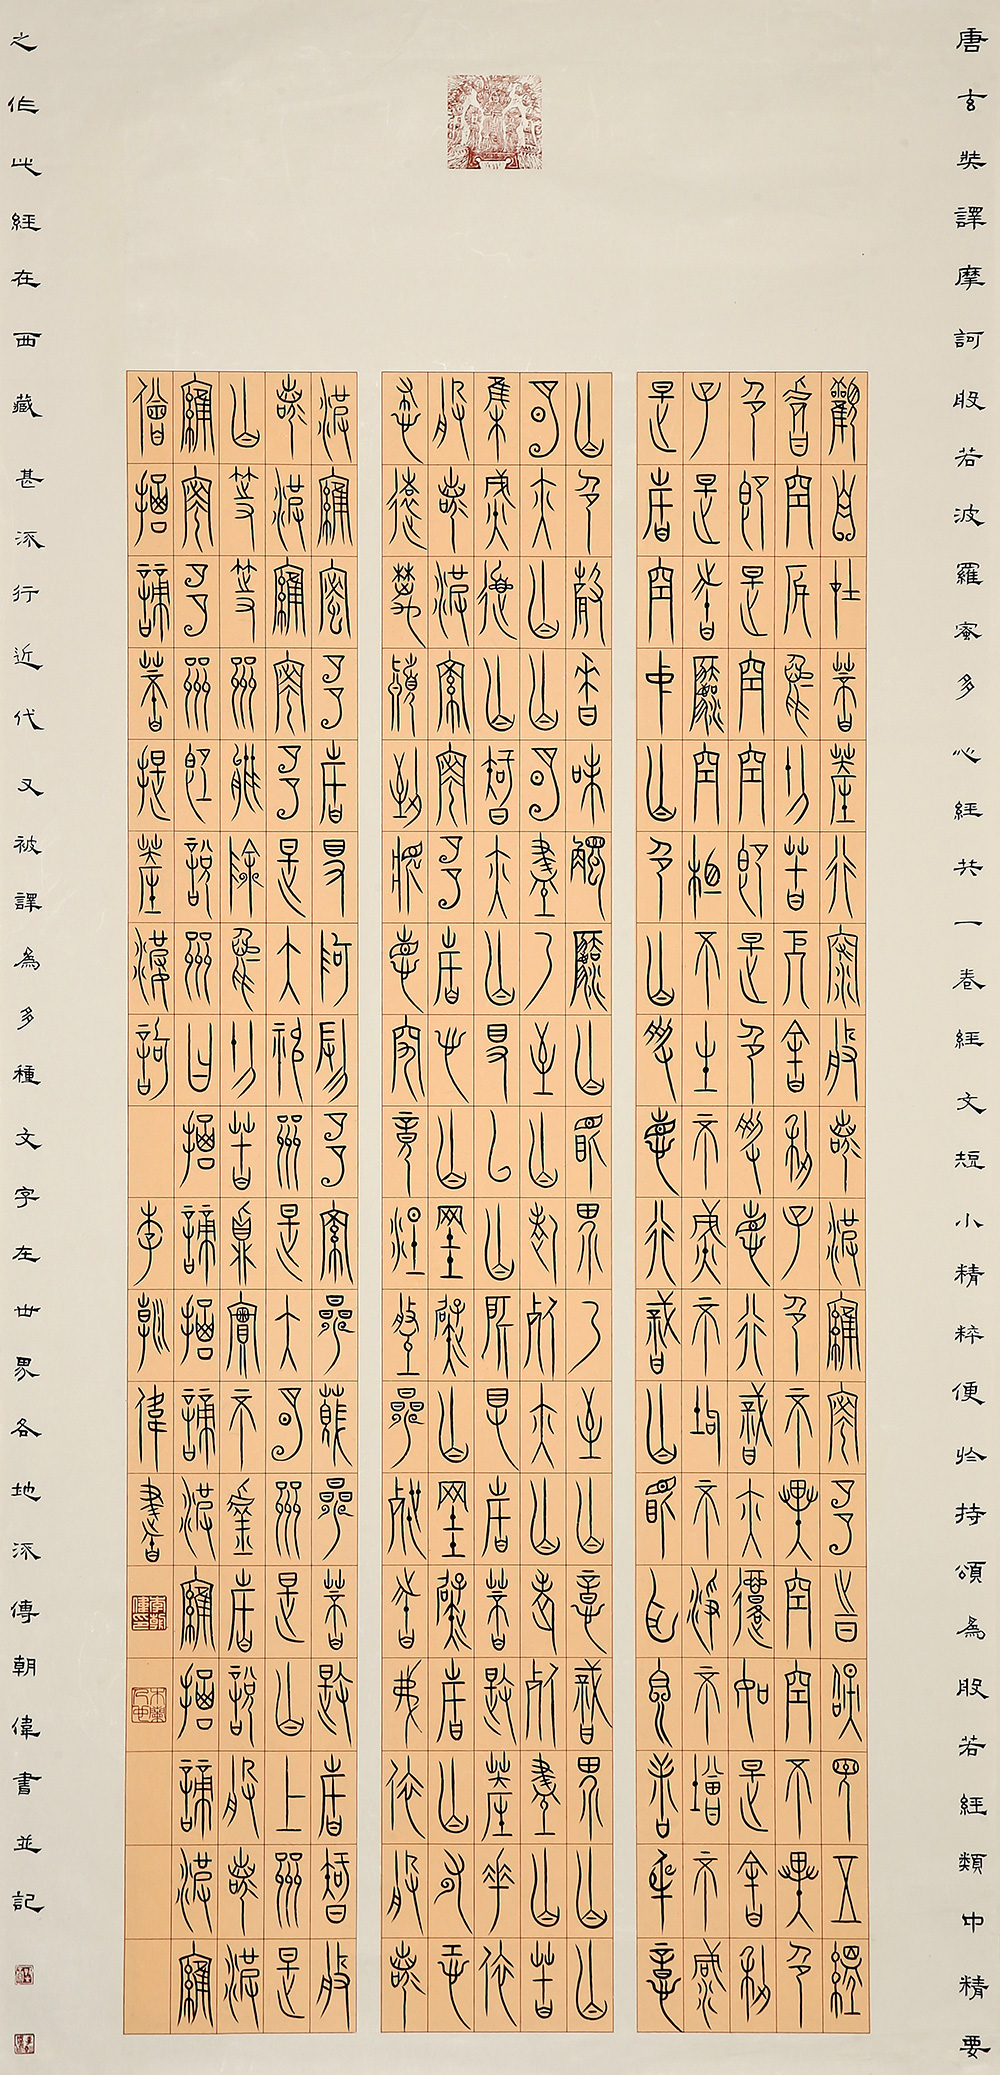 唐玄奘譯摩訶般若波羅蜜多心經共一卷經文短小精粹便於持頌為般若經類中精要
觀自在菩薩行深般若波羅蜜多時照見五蘊
皆空度一切苦厄舍利子色不異空空不異色
色即是空空即是色受想行識亦復如是舍利
子是諸法空相不生不滅不垢不淨不增不減
是故空中無色無受想行識無眼耳鼻舌身意
無色聲香味觸法無眼界乃至無意識界無無
明亦無無明盡乃至無老死亦無老死盡無苦
集滅道無智亦無得以無所得故菩提薩埵依
般若波羅蜜多故心無罣礙無罣礙故無有恐
怖遠離顛倒夢想究竟涅槃三世諸佛依般若
波羅蜜多故得阿耨多羅三藐三菩提故知般
若波羅蜜多是大神咒是大明咒是無上咒是
無等等咒能除一切苦真實不虛故說般若波
羅蜜多咒即說咒曰揭諦揭諦波羅揭諦波羅
僧揭諦菩提薩婆訶 李朝偉書
之作此經在西藏甚流行近代又被譯為多種文字在世界各地流傳朝偉書並記